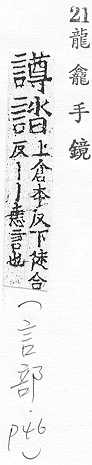 21龍龕手鏡
譐誻上倉本反下徒合
反丨丨恚言也
（言部·p46）